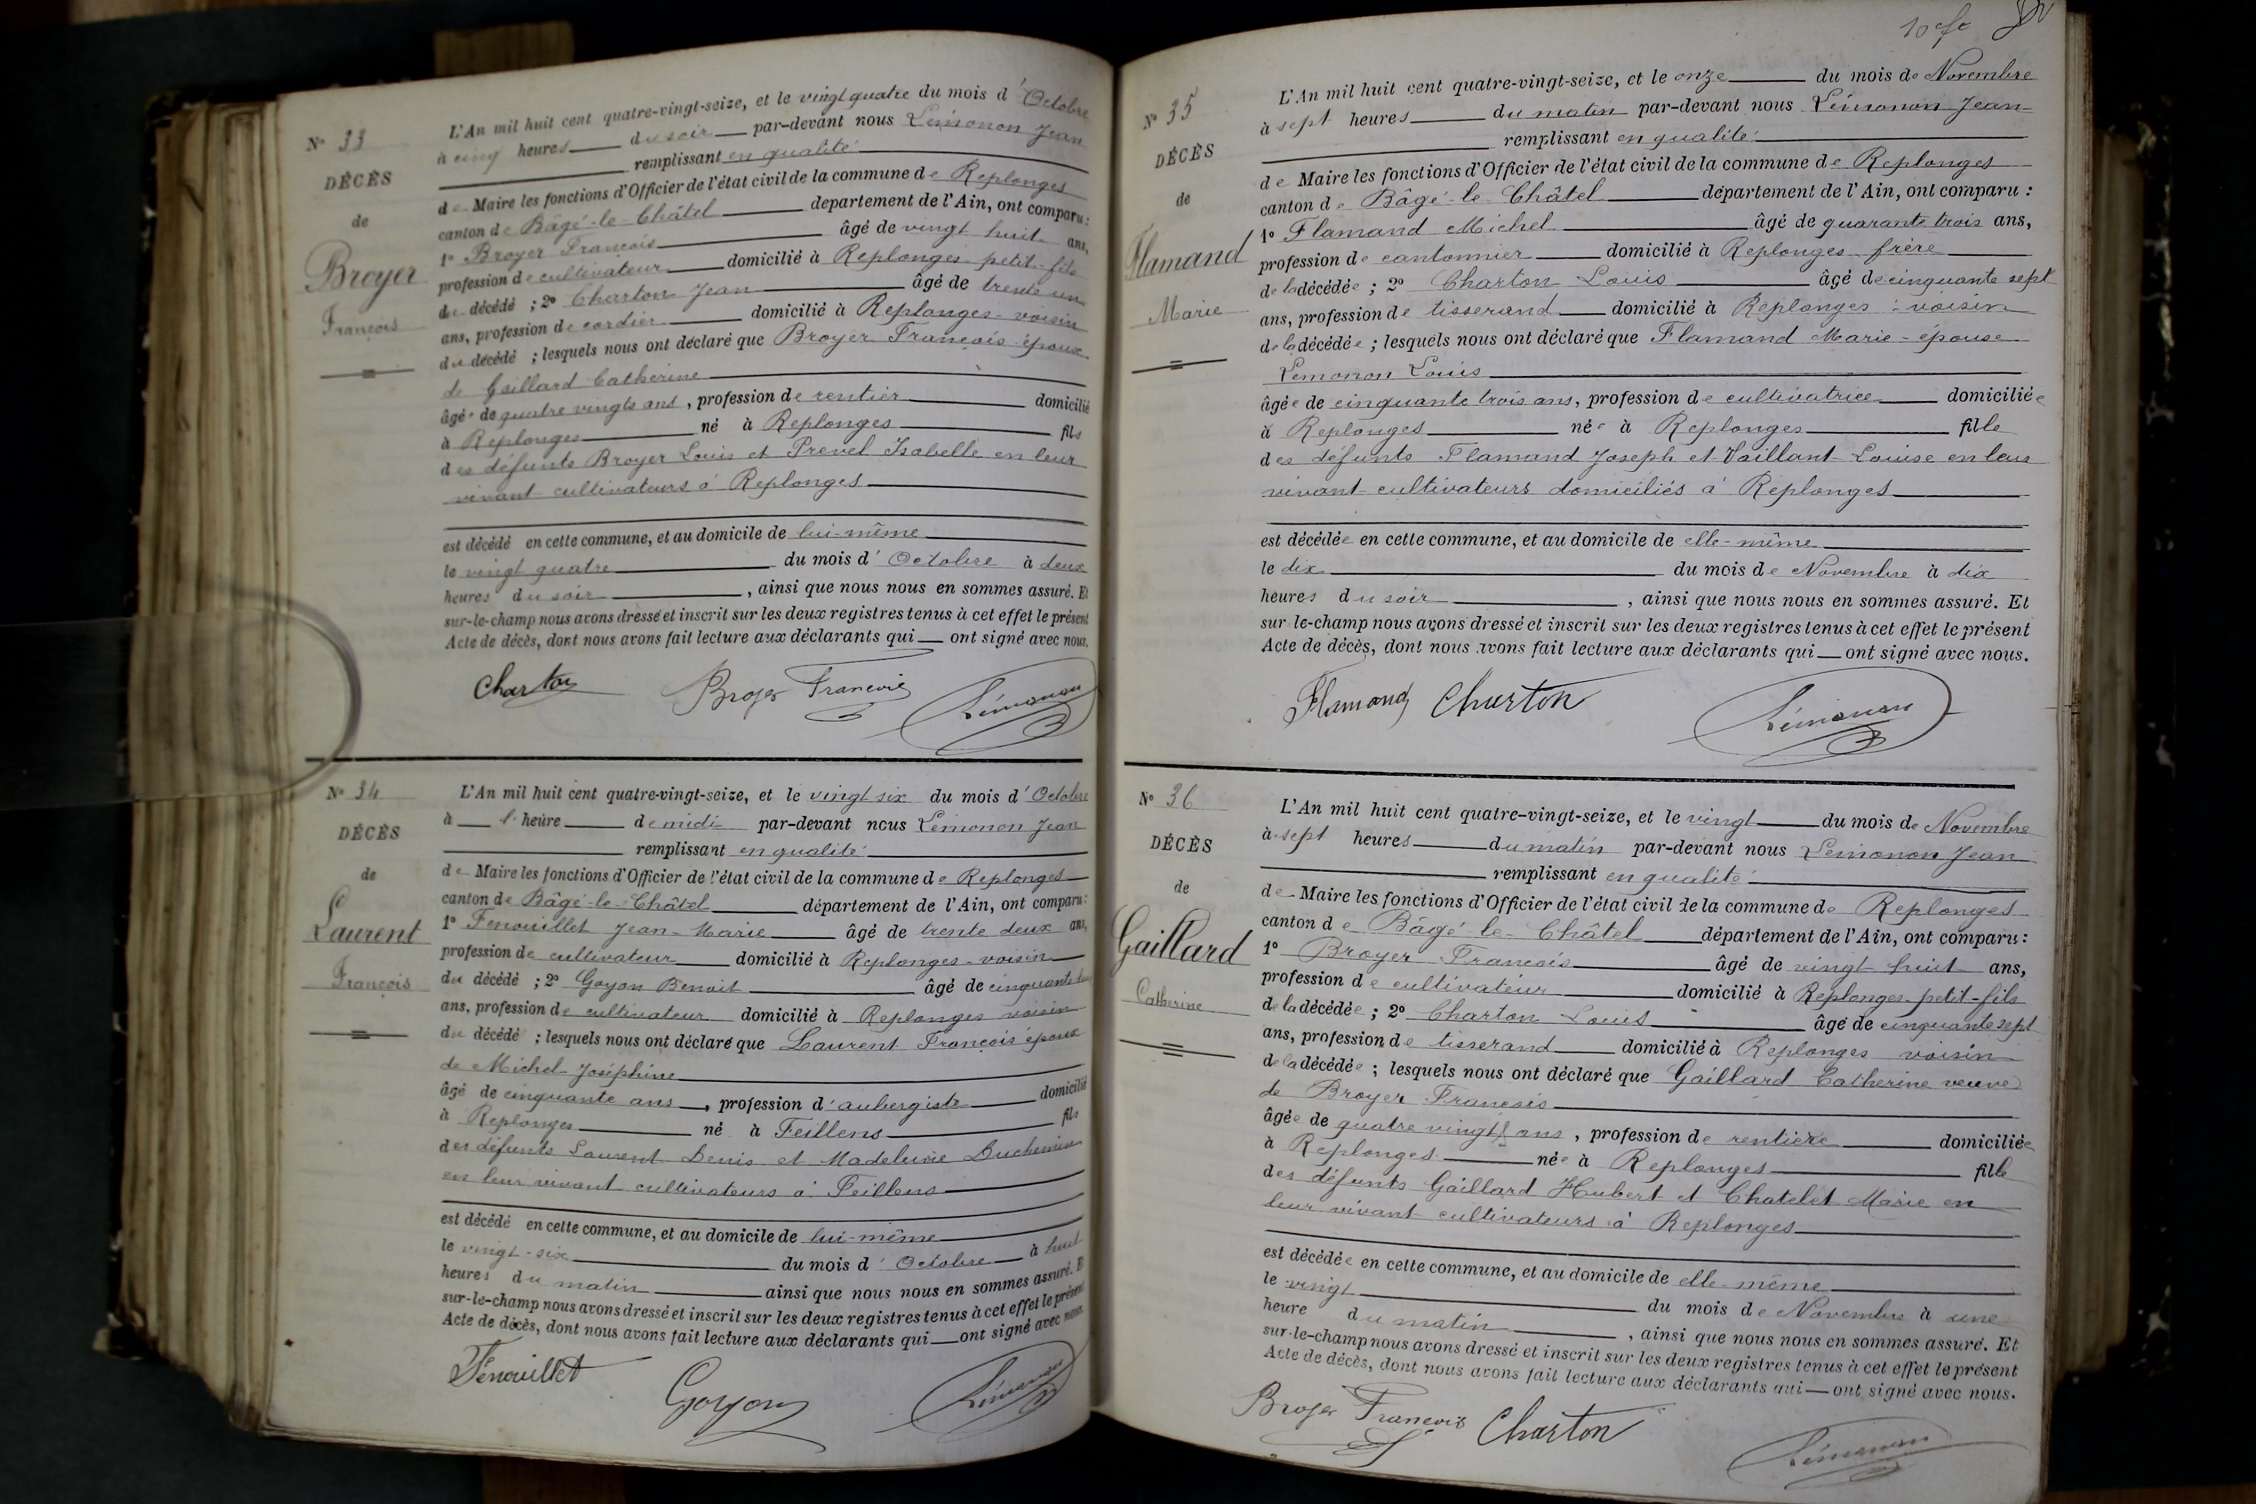 N° 33
DÉCÈS
de
Broyer
François
L'An mil huit cent quatre-vingt-seize, et le vingt quatre du mois d'Octobre
à cinq heures du soir par-devant nous Lémonon Jean
remplissant en qualité
de Maire les fonctions d'Officier de l'état civil de la commune de Replonges
canton de Bâgé-le-Châtel département de l'Ain, ont comparu :
1° Broyer François âgé de vingt huit ans,
profession de cultivateur domicilié à Replonges petit-fils
du décédé ; 2° Charton Jean âgé de trente un
ans, profession de cordier domicilié à Replonges - voisin
du décédé ; lesquels nous ont déclaré que Broyer François époux
de Gaillard Catherine
âgé de quatre vingts ans, profession de rentier domicilié
à Replonges né à Replonges fils
des défunts Broyer Louis et Prevel Isabelle en leur
vivant cultivateurs à Replonges
est décédé en cette commune, et au domicile de lui-même
le vingt quatre du mois d'Octobre à deux
heures du soir, ainsi que nous nous en sommes assuré. Et
sur-le-champ nous avons dressé et inscrit sur les deux registres tenus à cet effet le présent
Acte de décès, dont nous avons fait lecture aux déclarants qui — ont signé avec nous.
Charton Broyer François Lémonon
N° 34
DÉCÈS
de
Laurent
François
L'An mil huit cent quatre-vingt-seize, et le vingt six du mois d'Octobre
à — l'heure de midi par-devant nous Lémonon Jean
remplissant en qualité
de Maire les fonctions d'Officier de l'état civil de la commune de Replonges
canton de Bâgé-le-Châtel département de l'Ain, ont comparu :
1° Fenouillet Jean-Marie âgé de trente deux ans,
profession de cultivateur domicilié à Replonges - voisin
du décédé ; 2° Goyon Benoit âgé de cinquante
ans, profession de cultivateur domicilié à Replonges voisin
du décédé ; lesquels nous ont déclaré que Laurent François époux
de Michel Joséphine
âgé de cinquante ans, profession d'aubergiste domicilié
à Replonges né à Feillens fils
des défunts Laurent Denis et Madeleine Duchemin
en leur vivant cultivateurs à Feillens
est décédé en cette commune, et au domicile de lui-même
le vingt-six du mois d'Octobre à huit
heures du matin ainsi que nous nous en sommes assuré. Et
sur-le-champ nous avons dressé et inscrit sur les deux registres tenus à cet effet le présent
Acte de décès, dont nous avons fait lecture aux déclarants qui — ont signé avec nous.
Fenouillet Goyon Lémonon
N° 35
DÉCÈS
de
Flamand
Marie
L'An mil huit cent quatre-vingt-seize, et le onze du mois de Novembre
à sept heures du matin par-devant nous Lémonon Jean
remplissant en qualité
de Maire les fonctions d'Officier de l'état civil de la commune de Replonges
canton de Bâgé-le-Châtel département de l'Ain, ont comparu :
1° Flamand Michel âgé de quarante trois ans,
profession de cantonnier domicilié à Replonges frère
de la décédée ; 2° Charton Louis âgé de cinquante sept
ans, profession de tisserand domicilié à Replonges - voisin
de la décédée ; lesquels nous ont déclaré que Flamand Marie - épouse
Lemonon Louis
âgée de cinquante trois ans, profession de cultivatrice domiciliée
à Replonges née à Replonges fille
des défunts Flamand Joseph et Vaillant Louise en leur
vivant cultivateurs domiciliés à Replonges
est décédée en cette commune, et au domicile de elle-même
le dix du mois de Novembre à dix
heures du soir, ainsi que nous nous en sommes assuré. Et
sur-le-champ nous avons dressé et inscrit sur les deux registres tenus à cet effet le présent
Acte de décès, dont nous avons fait lecture aux déclarants qui — ont signé avec nous.
Flamand Charton Lémonon
N° 36
DÉCÈS
de
Gaillard
Catherine
L'An mil huit cent quatre-vingt-seize, et le vingt du mois de Novembre
à sept heures du matin par-devant nous Lémonon Jean
remplissant en qualité
de Maire les fonctions d'Officier de l'état civil de la commune de Replonges
canton de Bâgé-le-Châtel département de l'Ain, ont comparu :
1° Broyer François âgé de vingt huit ans,
profession de cultivateur domicilié à Replonges petit-fils
de la décédée ; 2° Charton Louis âgé de cinquante sept
ans, profession de tisserand domicilié à Replonges voisin
de la décédée ; lesquels nous ont déclaré que Gaillard Catherine veuve
de Broyer François
âgée de quatre vingts ans, profession de rentière domiciliée
à Replonges née à Replonges fille
des défunts Gaillard Hubert et Chatelet Marie en
leur vivant cultivateurs à Replonges
est décédée en cette commune, et au domicile de elle-même
le vingt du mois de Novembre à une
heure du matin, ainsi que nous nous en sommes assuré. Et
sur-le-champ nous avons dressé et inscrit sur les deux registres tenus à cet effet le présent
Acte de décès, dont nous avons fait lecture aux déclarants qui — ont signé avec nous.
Broyer François Charton Lémonon